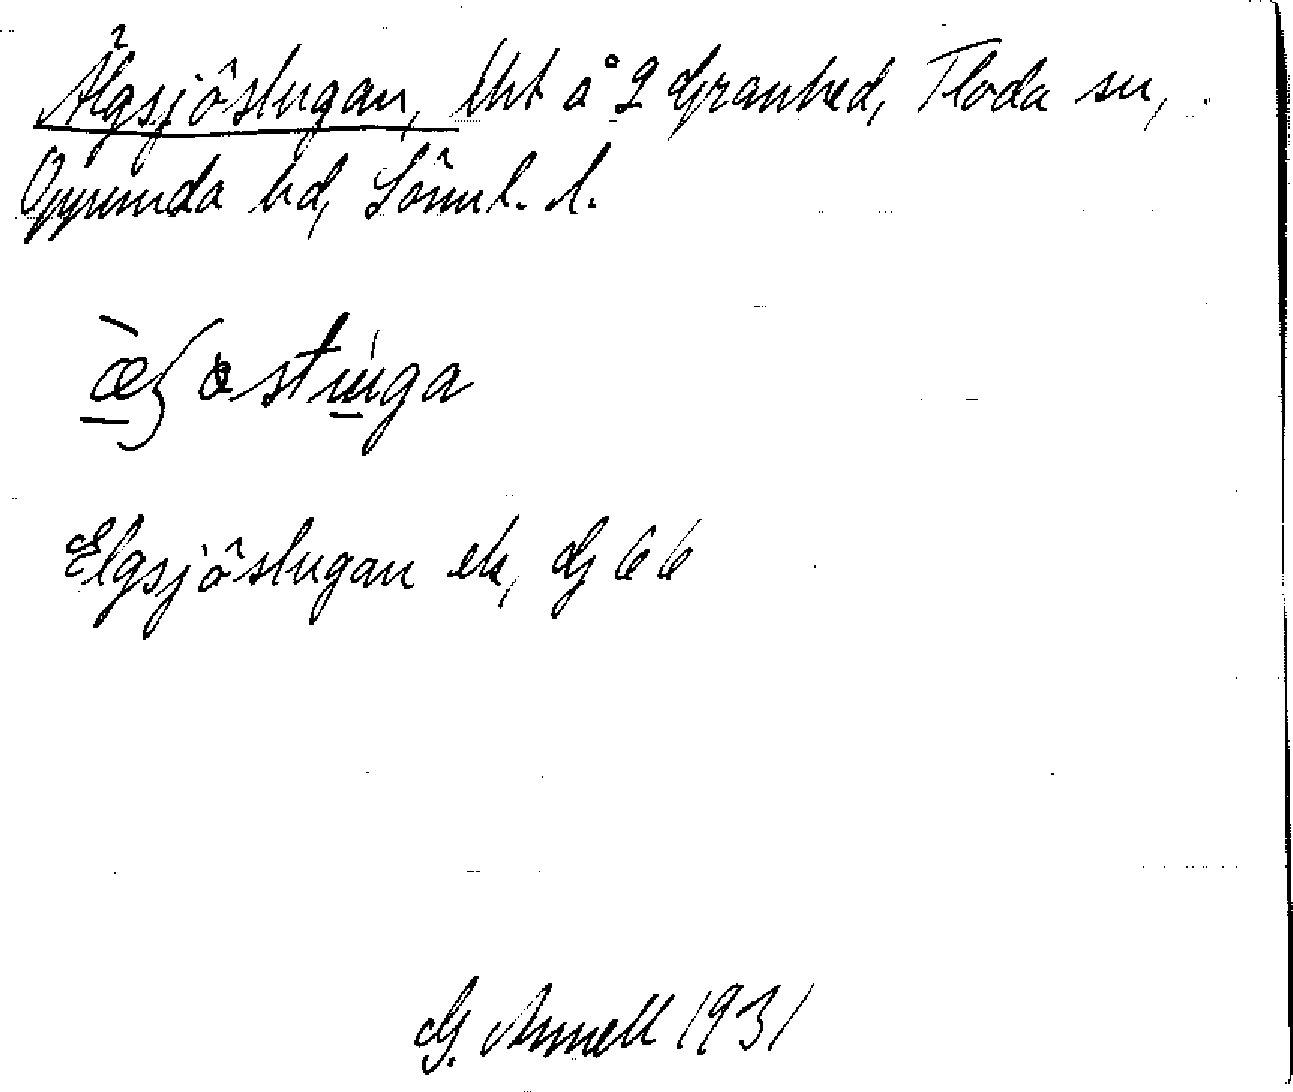 Älgsjöstugan, tht å 2 Granhed, Floda sn,
Oppunda hd, Sörml. l.
Elgsjöstugan ek, G 66
G. Annell 1931